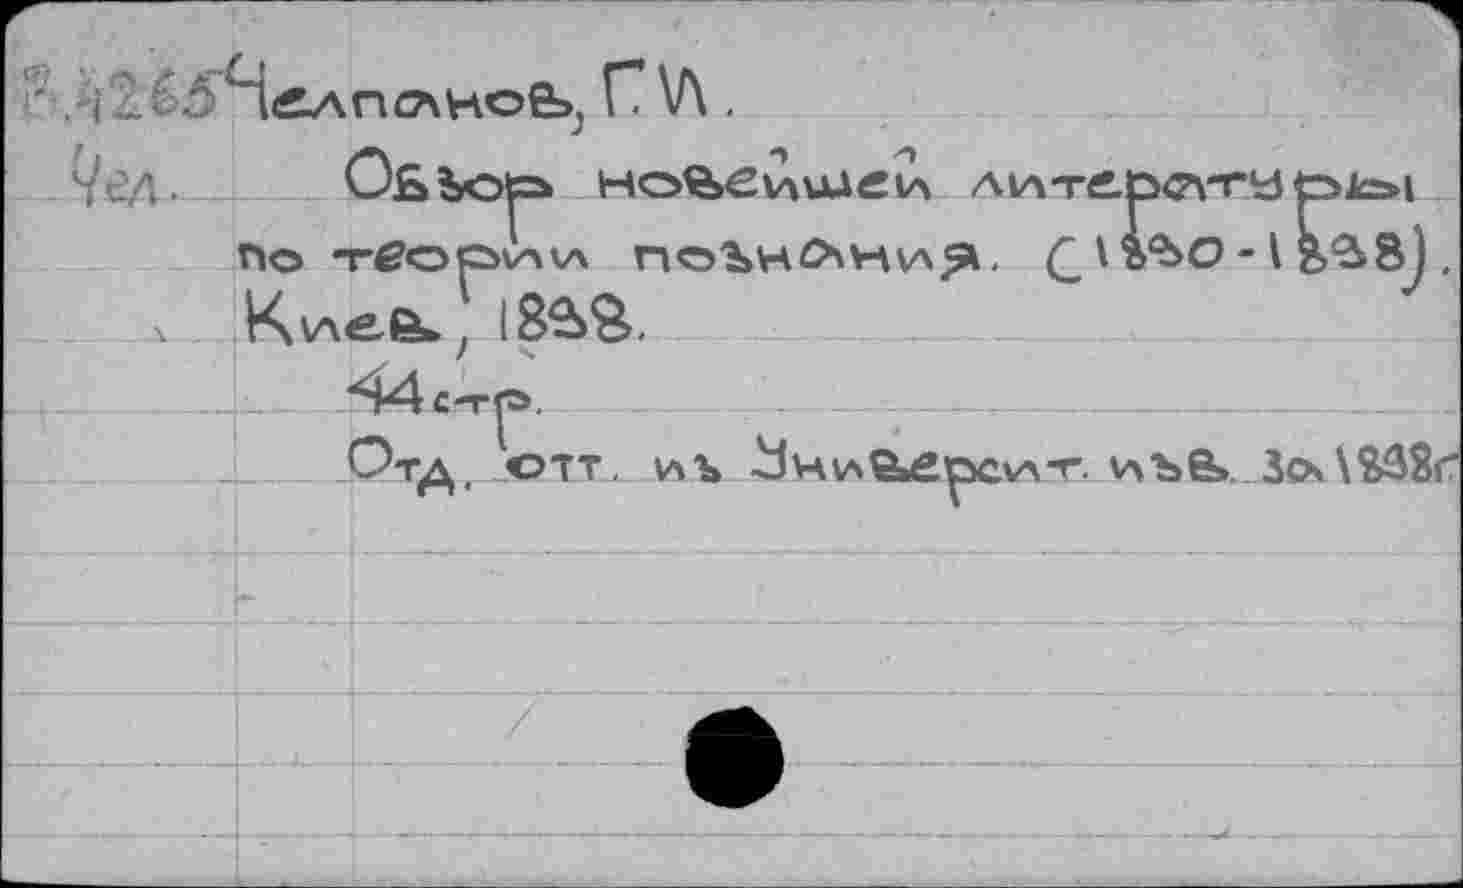 Р.4265 Челпанов, Г. И.
Чел. Обзор новейшей литературы
по теории познания. (1890-1898).
Киев, 1898.
44 стр.
Отд. отт. из Университ. изв. За 1898г